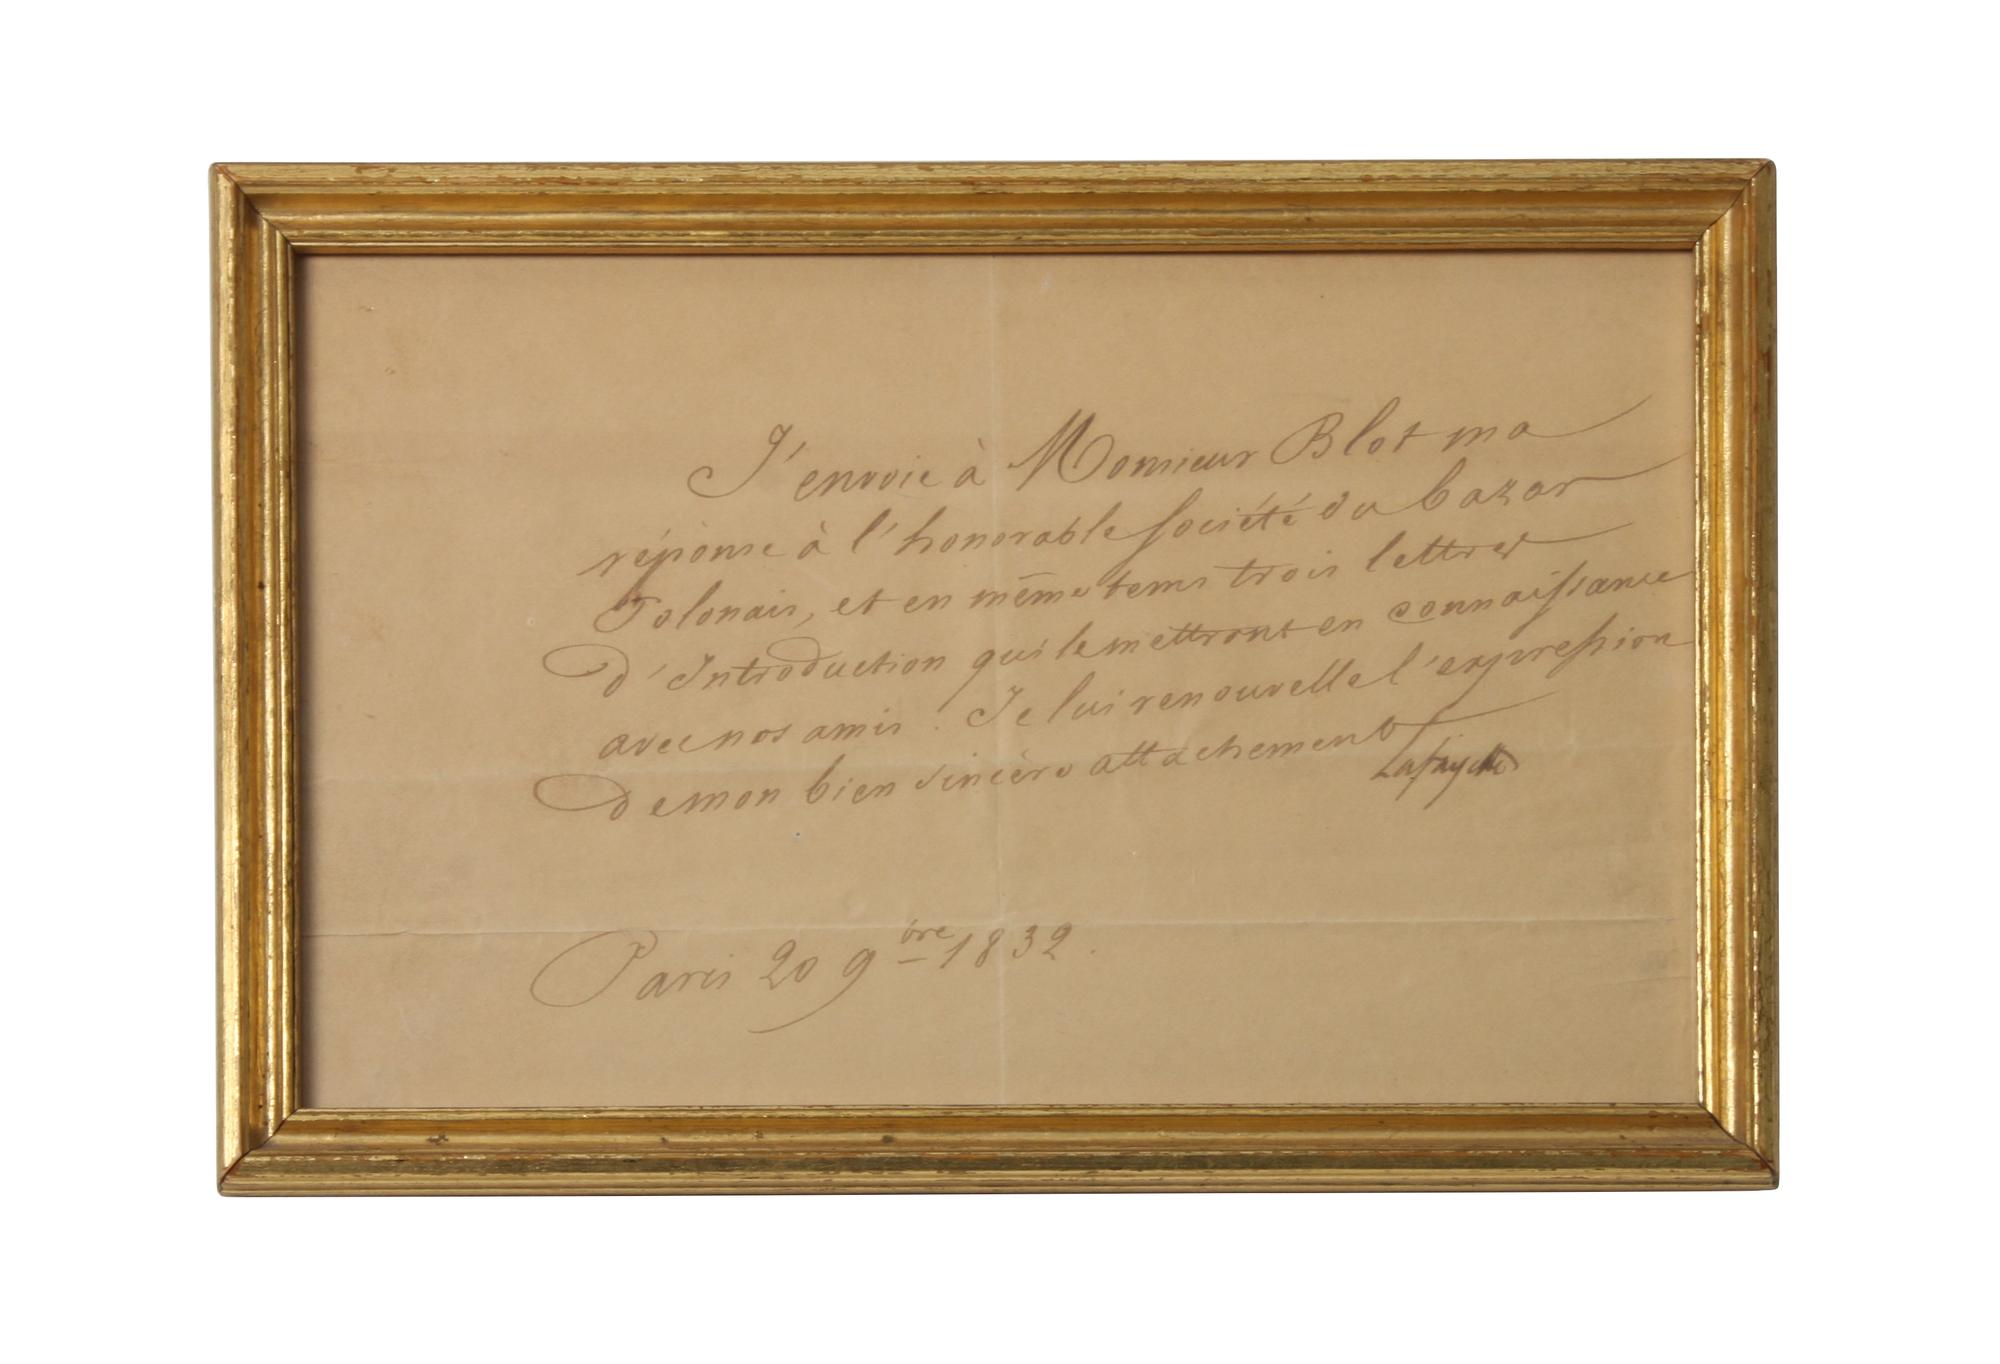 J'envoie à Monsieur Blot ma
réponse à l'honorable société du bazar
Polonais, et en même tems trois lettres
d'Introduction qui le mettront en connaissance
avec nos amis. Je lui renouvelle l'expression
de mon bien sincère attachement
Lafayette
Paris 20 9bre 1832.